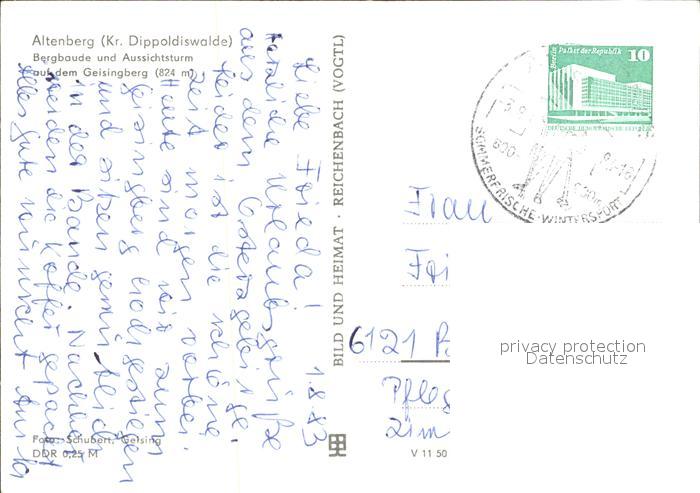 Altenberg (Kr. Dippoldiswalde)
Bergbaude und Aussichtsturm
auf dem Geisingberg (824 m)
Liebe Frieda! 1.8.83
Herzliche Urlaubsgrüße
aus dem Osterzgebirge.
Leider ist die schöne
Zeit morgen vorbei.
Heute sind wir zum
Geisingberg hochgestiegen
und sitzen gemütlich
in der Baude. Nachher
werden die Koffer gepackt
Alles Gute wünscht
Foto: Schubert, Geising
DDR 0,25 M
BILD UND HEIMAT · REICHENBACH (VOGTL)
V 11 50
Berlin, Palast der Republik
10
DEUTSCHE DEMOKRATISCHE REPUBLIK
SOMMERFRISCHE · WINTERSPORT
Frau
6121
Pfleg
Zim
privacy protection
Datenschutz